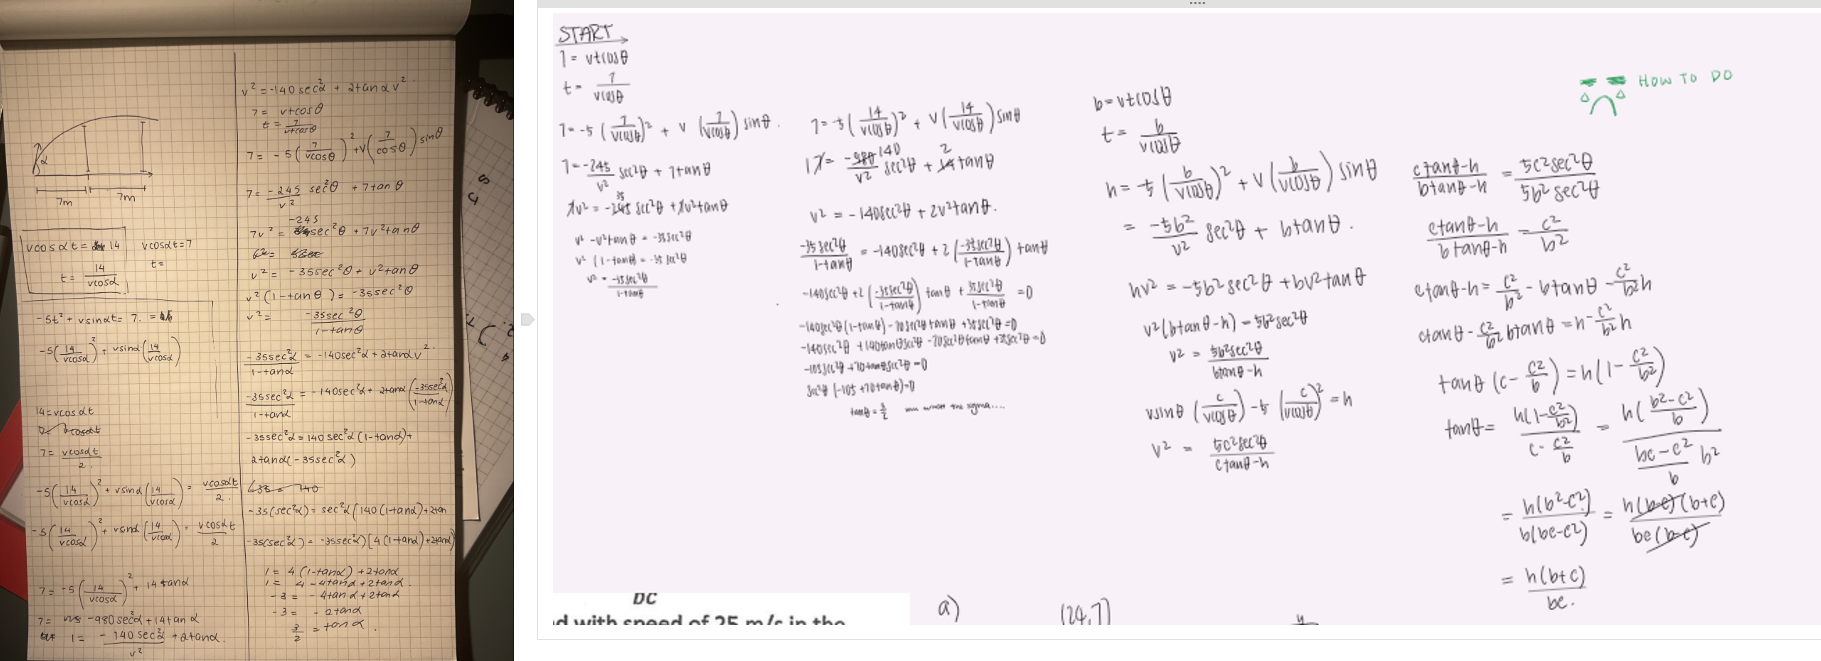 7m
7m
vcosαt = 14
t = 14/vcosα
vcosαt = 7
t =
-5t² + vsinαt = 7.
-5(14/vcosα)² + vsinα(14/vcosα)
14 = vcosαt
7 = vcosαt/2
-5(14/vcosα)² + vsinα(14/vcosα) = vcosαt/2
-5(14/vcosα)² + vsinα(14/vcosα) = vcosαt/2
7 = -5(14/vcosα)² + 14tanα
7 = -980sec²α + 14tanα
1 = -140sec²α/v² + 2tanα.
v² = -140sec²α + 2tanαv²
7 = vtcosθ
7 = -5(7/vcosθ)² + v(7/cosθ)sinθ
7 = -245/v² sec²θ + 7tanθ
7v² = -245sec²θ + 7v²tanθ
v² = -35sec²θ + v²tanθ
v²(1-tanθ) = -35sec²θ
v² = -35sec²θ/1-tanθ
-35sec²α/1-tanα = -140sec²α + 2tanαv²
-35sec²α/1-tanα = -140sec²α + 2tanα(-35sec²α/1-tanα)
-35sec²α = 140sec²α(1-tanα) +
2tanα(-35sec²α)
-35(sec²α) = sec²α[140(1-tanα) + 2tan
-35(sec²α) = -35sec²α[4(1-tanα) + 2tanα]
1 = 4(1-tanα) + 2tanα
1 = 4 - 4tanα + 2tanα
-3 = -4tanα + 2tanα
-3 = -2tanα
3/2 = tanα.
START
7 = vtcosθ
t = 7/vcosθ
7 = -5(7/vcosθ)² + v(7/vcosθ)sinθ.
7 = -245/v² sec²θ + 7tanθ
7v² = -245 35 sec²θ + 7v²tanθ
v² - v²tanθ = -35sec²θ
v²(1-tanθ) = -35sec²θ
v² = -35sec²θ/1-tanθ
7 = -5(14/vcosθ)² + v(14/vcosθ)sinθ
1 7 = -980 140/v² sec²θ + 2 14 tanθ
v² = -140sec²θ + 2v²tanθ.
-35sec²θ/1-tanθ = -140sec²θ + 2(-35sec²θ/1-tanθ)tanθ
-140sec²θ + 2(-35sec²θ/1-tanθ)tanθ + 35sec²θ/1-tanθ = 0
-140sec²θ(1-tanθ) - 70sec²θtanθ + 35sec²θ = 0
-140sec²θ + 140tanθsec²θ - 70sec²θtanθ + 35sec²θ = 0
-105sec²θ + 70tanθsec²θ = 0
sec²θ(-105 + 70tanθ) = 0
tanθ = 3/2
b = vtcosθ
t = b/vcosθ
h = -5(b/vcosθ)² + v(b/vcosθ)sinθ
= -5b²/v² sec²θ + btanθ.
hv² = -5b²sec²θ + bv²tanθ
v²(btanθ-h) = 5b²sec²θ
v² = 5b²sec²θ/btanθ-h
vsinθ(c/vcosθ) - 5(c/vcosθ)² = h
v² = 5c²sec²θ/ctanθ-h
HOW TO DO
ctanθ-h/btanθ-h = 5c²sec²θ/5b²sec²θ
ctanθ-h/btanθ-h = c²/b²
ctanθ-h = c²/b² · btanθ - c²/b² h
ctanθ - c²/b² btanθ = h - c²/b² h
tanθ(c - c²/b) = h(1 - c²/b²)
tanθ = h(1-c²/b²)/c-c²/b = h(b²-c²/b)/bc-c²/b b²
= h(b²-c²)/b(bc-c²) = h(b-c)(b+c)/bc(b-c)
= h(b+c)/bc.
bc
d with speed of 25 m/s in the
a)
(24,7)